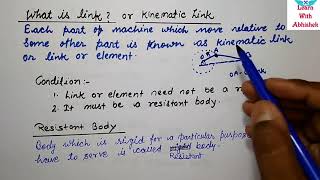 What is link? or Kinematic Link
Learn
With
Abhishek
Each part of machine which move relative to
Some other part is known as kinematic link
or link or element.
Condition:-
1. Link or element need not be a
2. It must be a resistant body.
Resistant Body
Body which is rigid for a particular purpose
have to serve is called body.
Resistant